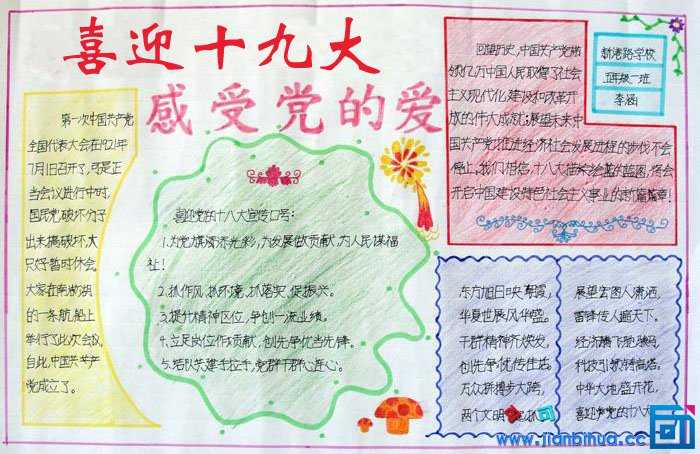 喜迎十九大
感受党的爱
第一次中国共产党
全国代表大会在1921年
7月1日召开了,可是正
当会议进行中时,
国民党破坏分子
出来搞破坏,大
只好暂时休会
大家在南湖湖
的一条航船上
举行了此次会议,
自此,中国共产
党成立了。
喜迎党的十八大宣传口号:
1.为党旗添光彩,为发展做贡献,为人民谋福
祉!
2.抓作风,抓环境,抓落实,促振兴。
3.提升精神区位,争创一流业绩。
4.立足岗位作贡献,创先争优当先锋。
5.结队共建手拉手,党群干群心连心。
回望历史,中国共产党带
领亿万中国人民取得了社会
主义现代化建设和改革开
放的伟大成就;展望未来,中
国共产党推进经济社会发展进程的步伐不会
停止。我们相信,十八大描来绘蓝的蓝图,将会
开启中国建设特色社会主义事业的新篇章!
新港路学校
五年级二班
李涵
东方旭日映彩霞,
华夏世展风华盛。
干群精神齐焕发,
创先争优传佳话。
万众拼搏步大跨,
两个文明
展望宏图人潇洒,
雷锋传人遍天下。
经济腾飞跑骏马,
科技引领
中华大地盛开花,
喜迎党的十八大。
www.jianbihua.cc